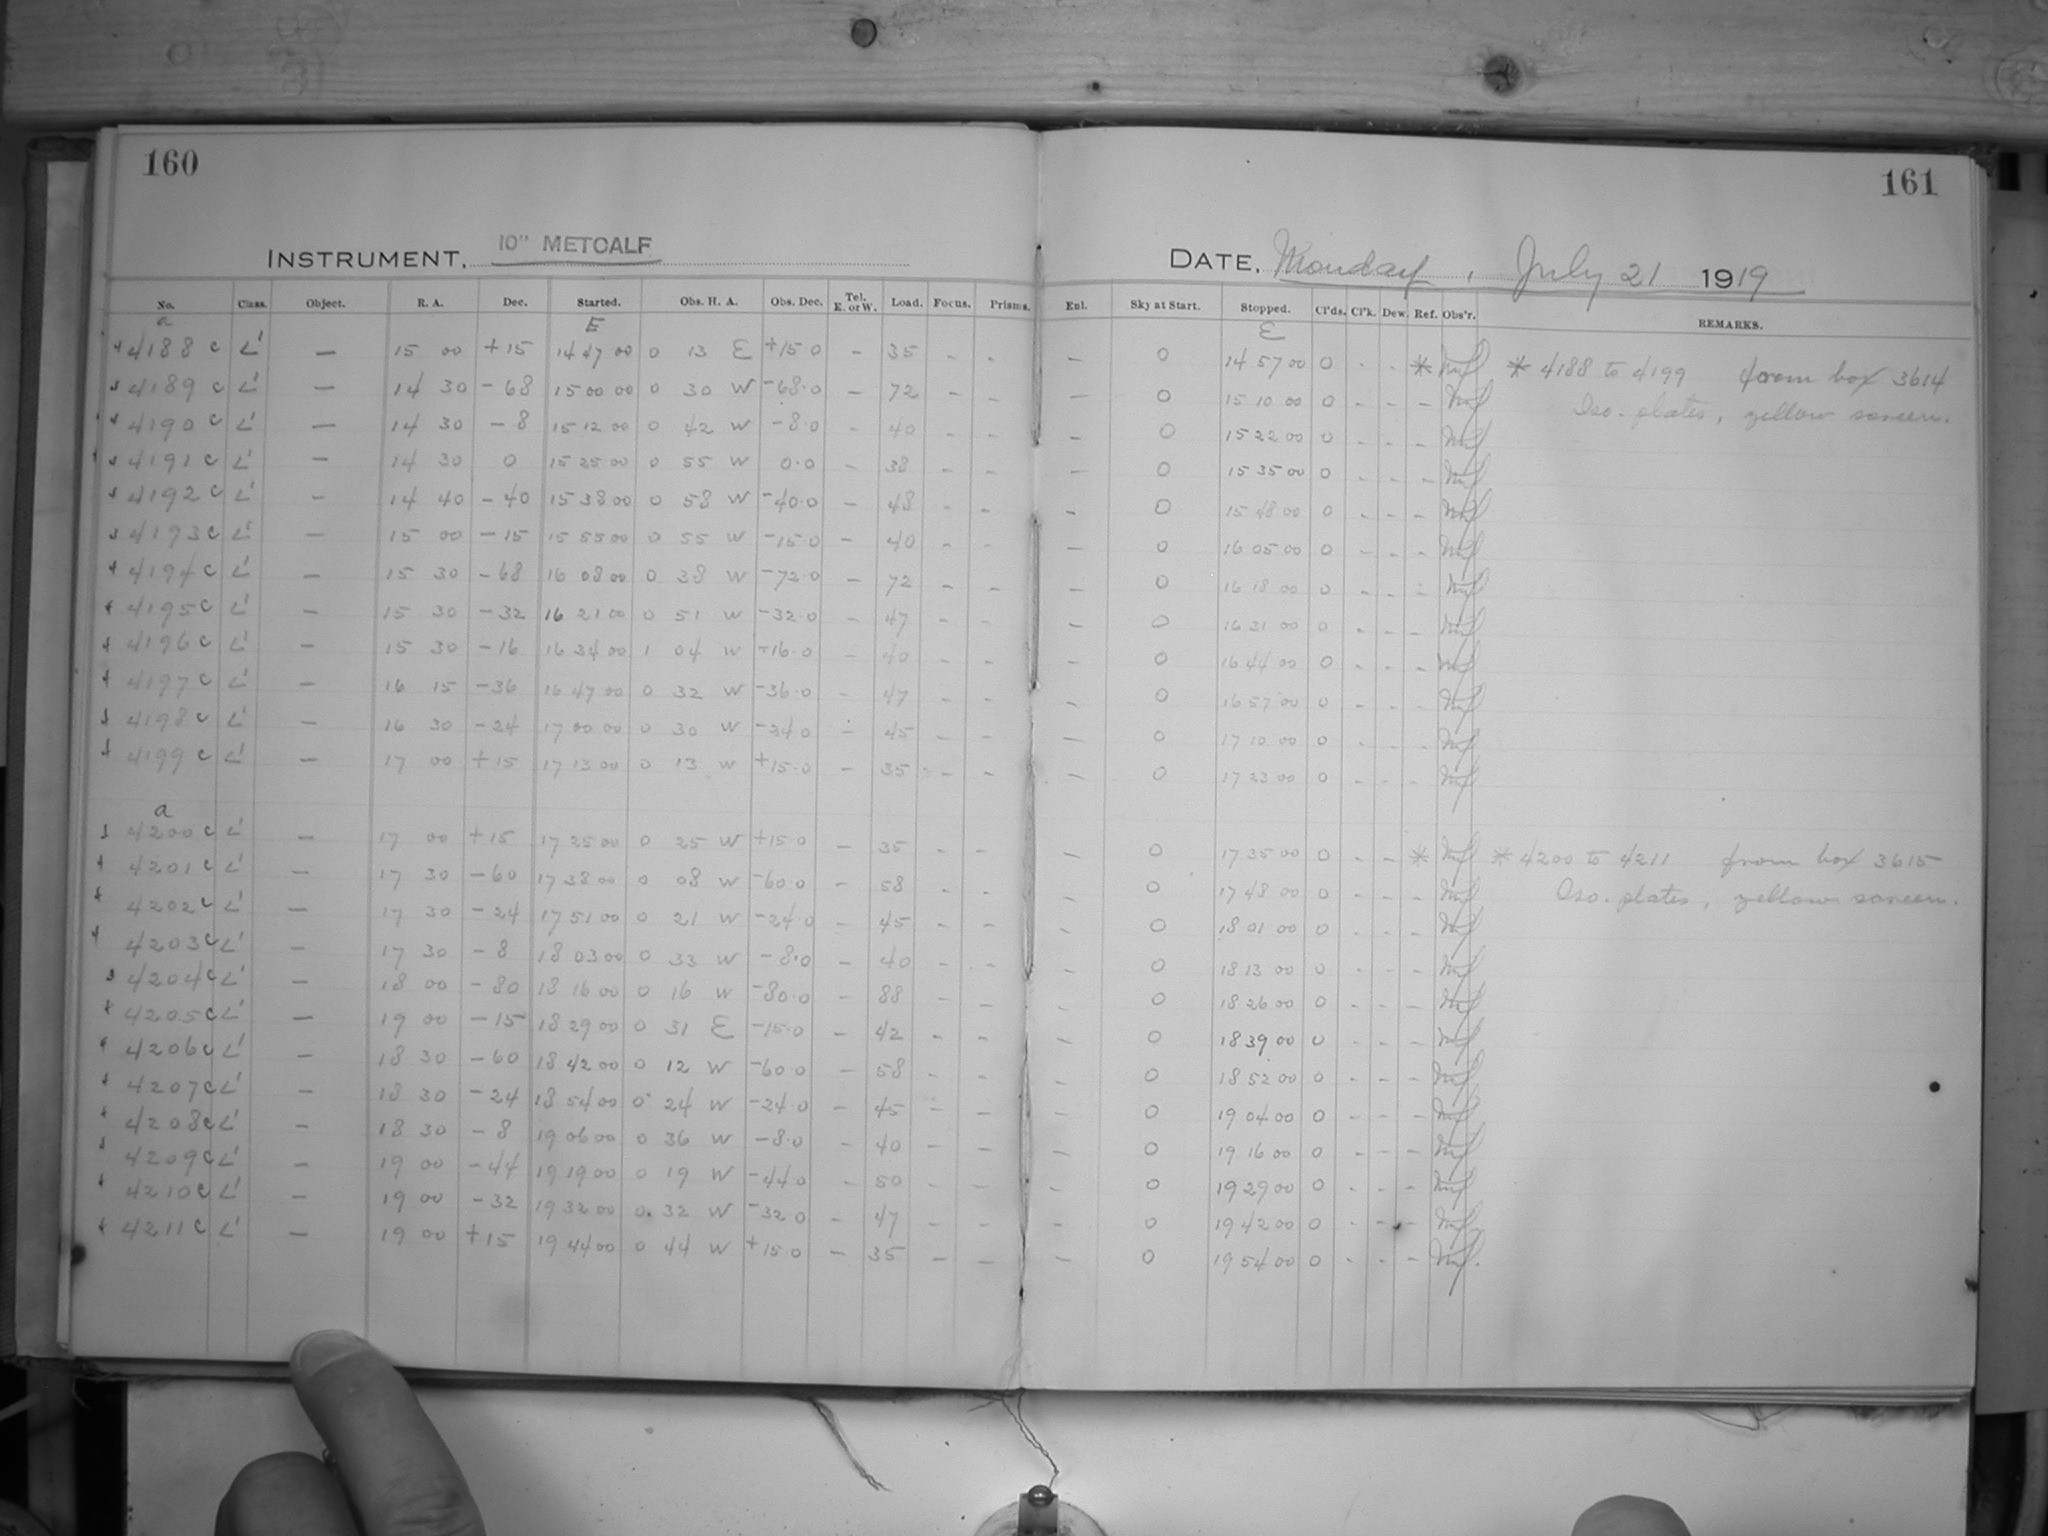 160
161
INSTRUMENT, 10" METCALF
DATE, Monday, July 21 1919
No. Class. Object. R. A. Dec. Started. Obs. H. A. Obs. Dec. Tel. E. or W. Load. Focus. Prisms. Enl. Sky at Start. Stopped. Cl'ds. Cl'k. Dew. Ref. Obs'r. REMARKS.
a E E
4188 c L' — 15 00 +15 14 47 00 0 13 E +15.0 - 35 - - — 0 14 57 00 0 - - * * 4188 to 4199 from box 3614
4189 c L' — 14 30 -68 15 00 00 0 30 W -68.0 - 72 - - — 0 15 10 00 0 - - - Iso. plates, yellow screen.
4190 c L' — 14 30 -8 15 12 00 0 42 W -8.0 - 40 - - — 0 15 22 00 0 - - -
4191 c L' — 14 30 0 15 25 00 0 55 W 0.0 - 38 - - — 0 15 35 00 0 - - -
4192 c L' — 14 40 -40 15 38 00 0 58 W -40.0 - 48 - - - 0 15 48 00 0 - - -
4193 c L' — 15 00 -15 15 55 00 0 55 W -15.0 - 40 - - — 0 16 05 00 0 - - -
4194 c L' — 15 30 -68 16 08 00 0 38 W -72.0 - 72 - - — 0 16 18 00 0 - - -
4195 c L' — 15 30 -32 16 21 00 0 51 W -32.0 - 47 - - — 0 16 31 00 0 - - -
4196 c L' — 15 30 -16 16 34 00 1 04 W -16.0 - 40 - - — 0 16 44 00 0 - - -
4197 c L' — 16 15 -36 16 47 00 0 32 W -36.0 - 47 - - - 0 16 57 00 0 - - -
4198 c L' — 16 30 -24 17 00 00 0 30 W -24.0 - 45 - - — 0 17 10 00 0 - - -
4199 c L' — 17 00 +15 17 13 00 0 13 W +15.0 - 35 - - — 0 17 23 00 0 - - -
a
4200 c L' — 17 00 +15 17 25 00 0 25 W +15.0 - 35 - - - 0 17 35 00 0 - - * * 4200 to 4211 from box 3615
4201 c L' — 17 30 -60 17 38 00 0 08 W -60.0 - 58 - - - 0 17 48 00 0 - - - Iso. plates, yellow screen.
4202 c L' — 17 30 -24 17 51 00 0 21 W -24.0 - 45 - - - 0 18 01 00 0 - - -
4203 c L' — 17 30 -8 18 03 00 0 33 W -8.0 - 40 - - - 0 18 13 00 0 - - -
4204 c L' — 18 00 -80 18 16 00 0 16 W -80.0 - 88 - - - 0 18 26 00 0 - - -
4205 c L' — 19 00 -15 18 29 00 0 31 E -15.0 - 42 - - - 0 18 39 00 0 - - -
4206 c L' — 18 30 -60 18 42 00 0 12 W -60.0 - 58 - - - 0 18 52 00 0 - - -
4207 c L' — 18 30 -24 18 54 00 0 24 W -24.0 - 45 - - - 0 19 04 00 0 - - -
4208 c L' — 18 30 -8 19 06 00 0 36 W -8.0 - 40 - - - 0 19 16 00 0 - - -
4209 c L' — 19 00 -44 19 19 00 0 19 W -44.0 - 50 - - - 0 19 29 00 0 - - -
4210 c L' — 19 00 -32 19 32 00 0 32 W -32.0 - 47 - - - 0 19 42 00 0 - - -
4211 c L' — 19 00 +15 19 44 00 0 44 W +15.0 - 35 - - - 0 19 54 00 0 - - -